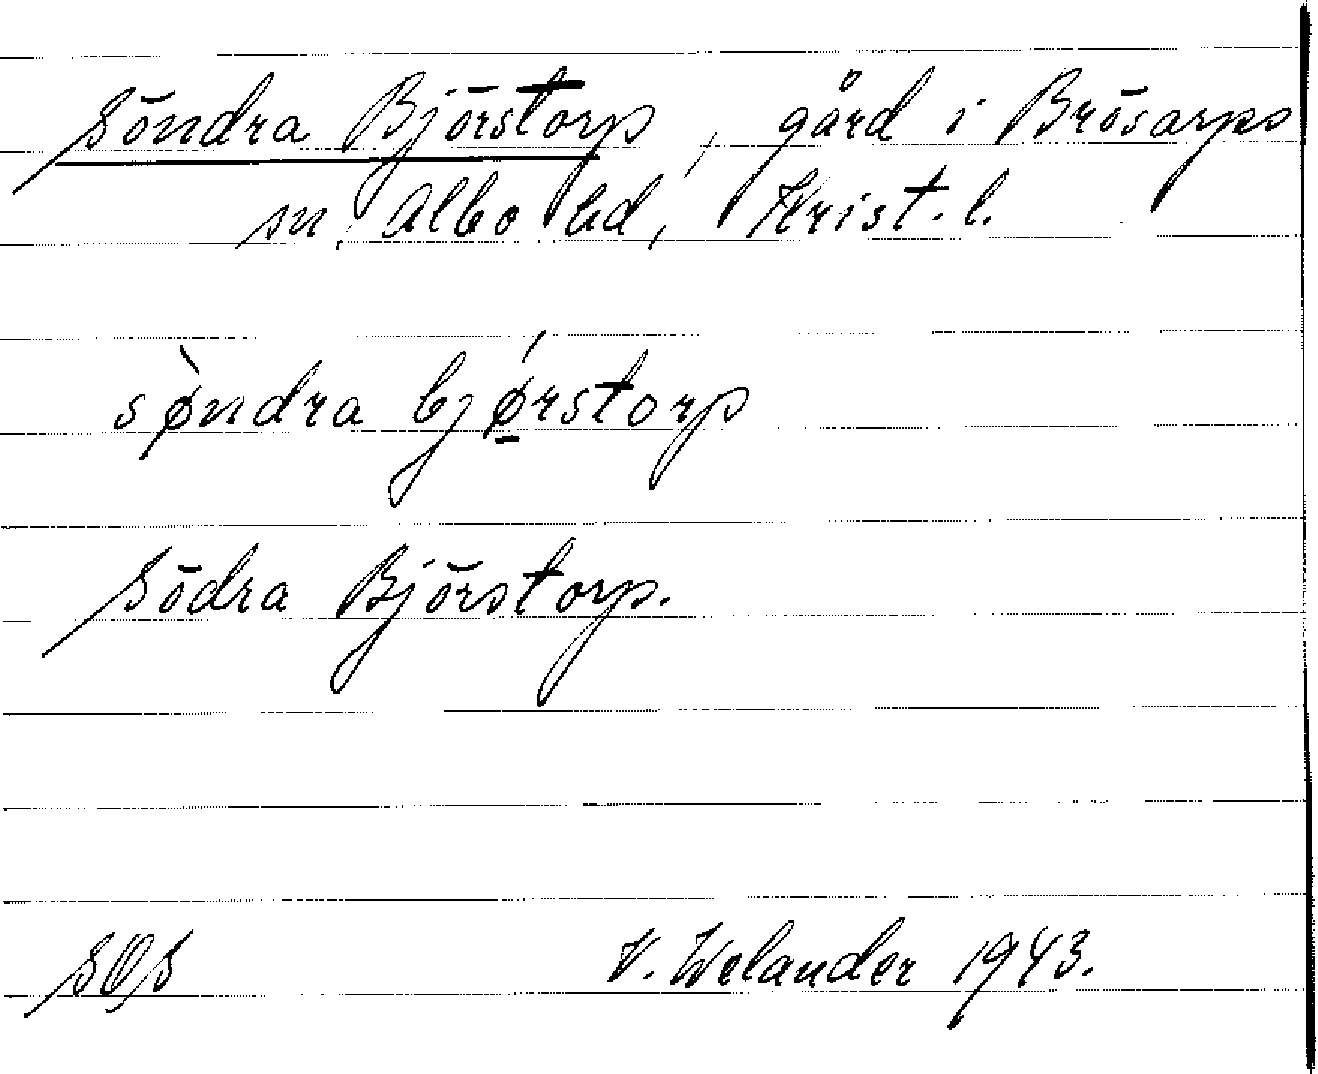 Söndra Björstorp, gård i Brösarps
sn, Albo hd, Krist. l.
sø̀ndra bjǿ̠rstorp
Södra Björstorp.
SOS V. Welander 1943.